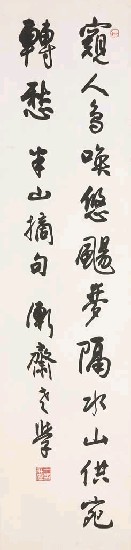 窺人鳥喚悠颺夢隔水山供宛
轉愁 半山摘句 漸齋老學